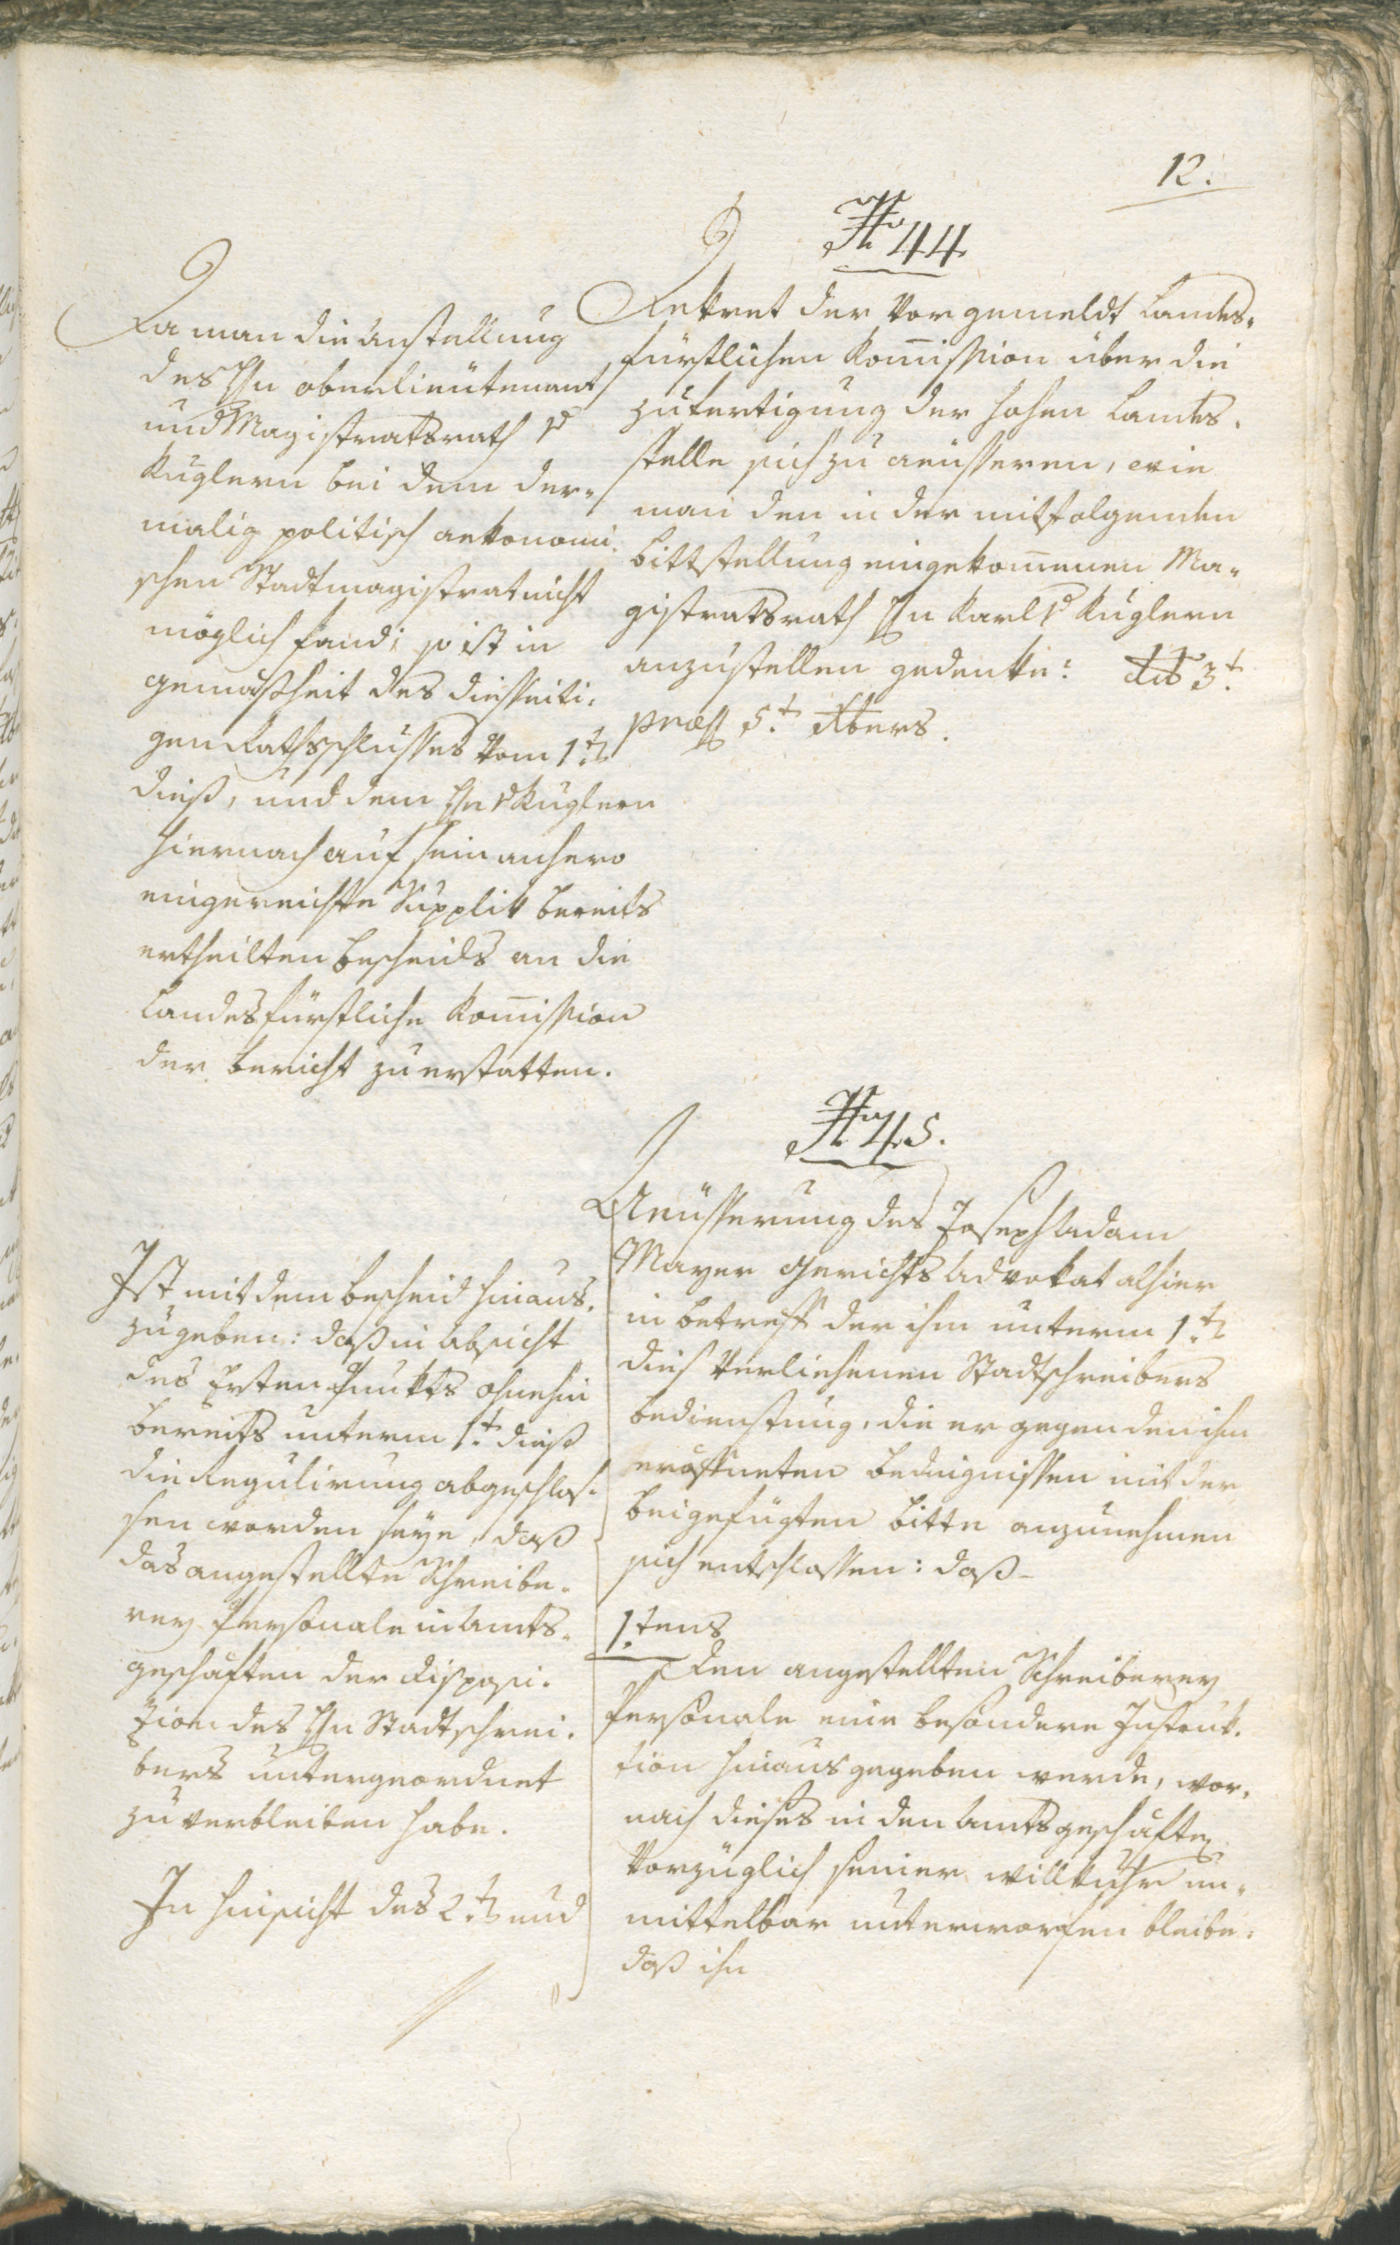 12.
No 44
Dekret der vorgemeldt Landes-
fürstlichen Kom̅ission über die
Zufertigung der hohen Landes-
stelle sich zu aeüsseren, wie
man den in der mitfolgenden
Bittstellung eingekom̅enen Ma-
gistratsrath Hn Karl v Kuglern
anzustellen gedenke: 3t.
præs 5t. Xbers.
Da man die Anstellung
des Hn Oberlieütenant
und Magistratsrath v
Kuglern bei dem der-
malig politisch oekonomi-
schen Stadtmagistrat nicht
möglich fand; so ist in
Gemäßheit des diesseiti-
gen Rathsschlusses vom 1tn
dieß, und dem Hn v Kuglern
hiernach auf sein anhero
eingereichte Supplik bereits
ertheilten Bescheids an die
Landesfürstliche Kom̅ission
der Bericht zu erstatten.
No 45.
Aeüsserung des Joseph Adam
Mayer Gerichts Advokat alhier
in betreff der ihm unterm 1tn
dies verliehenen Stadtschreibers
bedienstung, die er gegen den ihm
eröffneten Bedingnissen mit der
beigefügten Bitte anzunehmen
sich entschlossen: daß
1tens
Dem angestellten Schreiberey
Personale eine besondere Instruk-
tion hinausgegeben werde, wor-
nach dieses in den Amtsgeschäften
vorzüglich seiner Willkuhr un-
mittelbar unterworfen bleibe:
daß ihn
Ist mit dem Bescheid hinaus-
zugeben: daß in Absicht
des Ersten Punkts ohnehin
bereits unterm 1t. dieß
die Regulirung abgeschlos-
sen worden seye, daß
das angestellte Schreibe-
rey Personale in Amts-
geschäften der Disposi-
zion des Hn Stadtschrei-
bers untergeordnet
zu verbleiben habe.
In Hinsicht des 2tn und